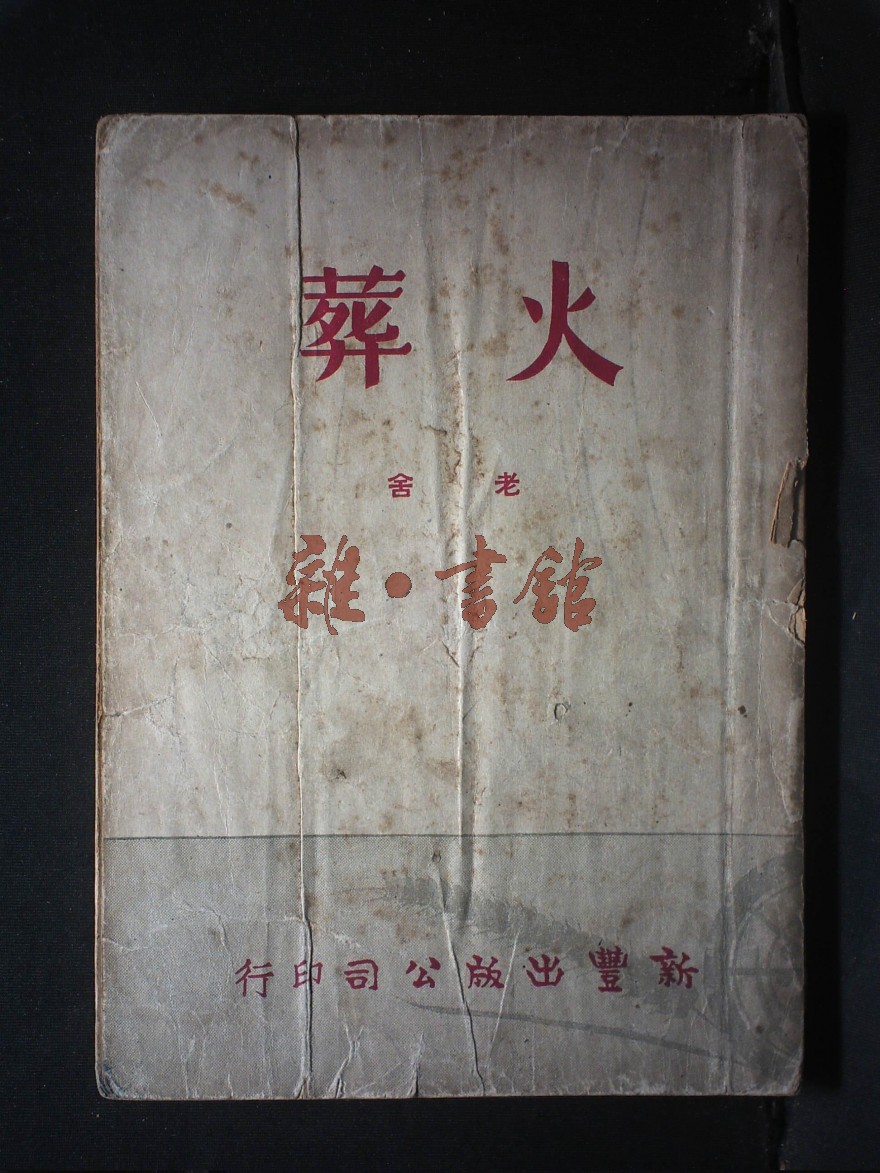 火葬
老舍
雜·書館
新豐出版公司印行